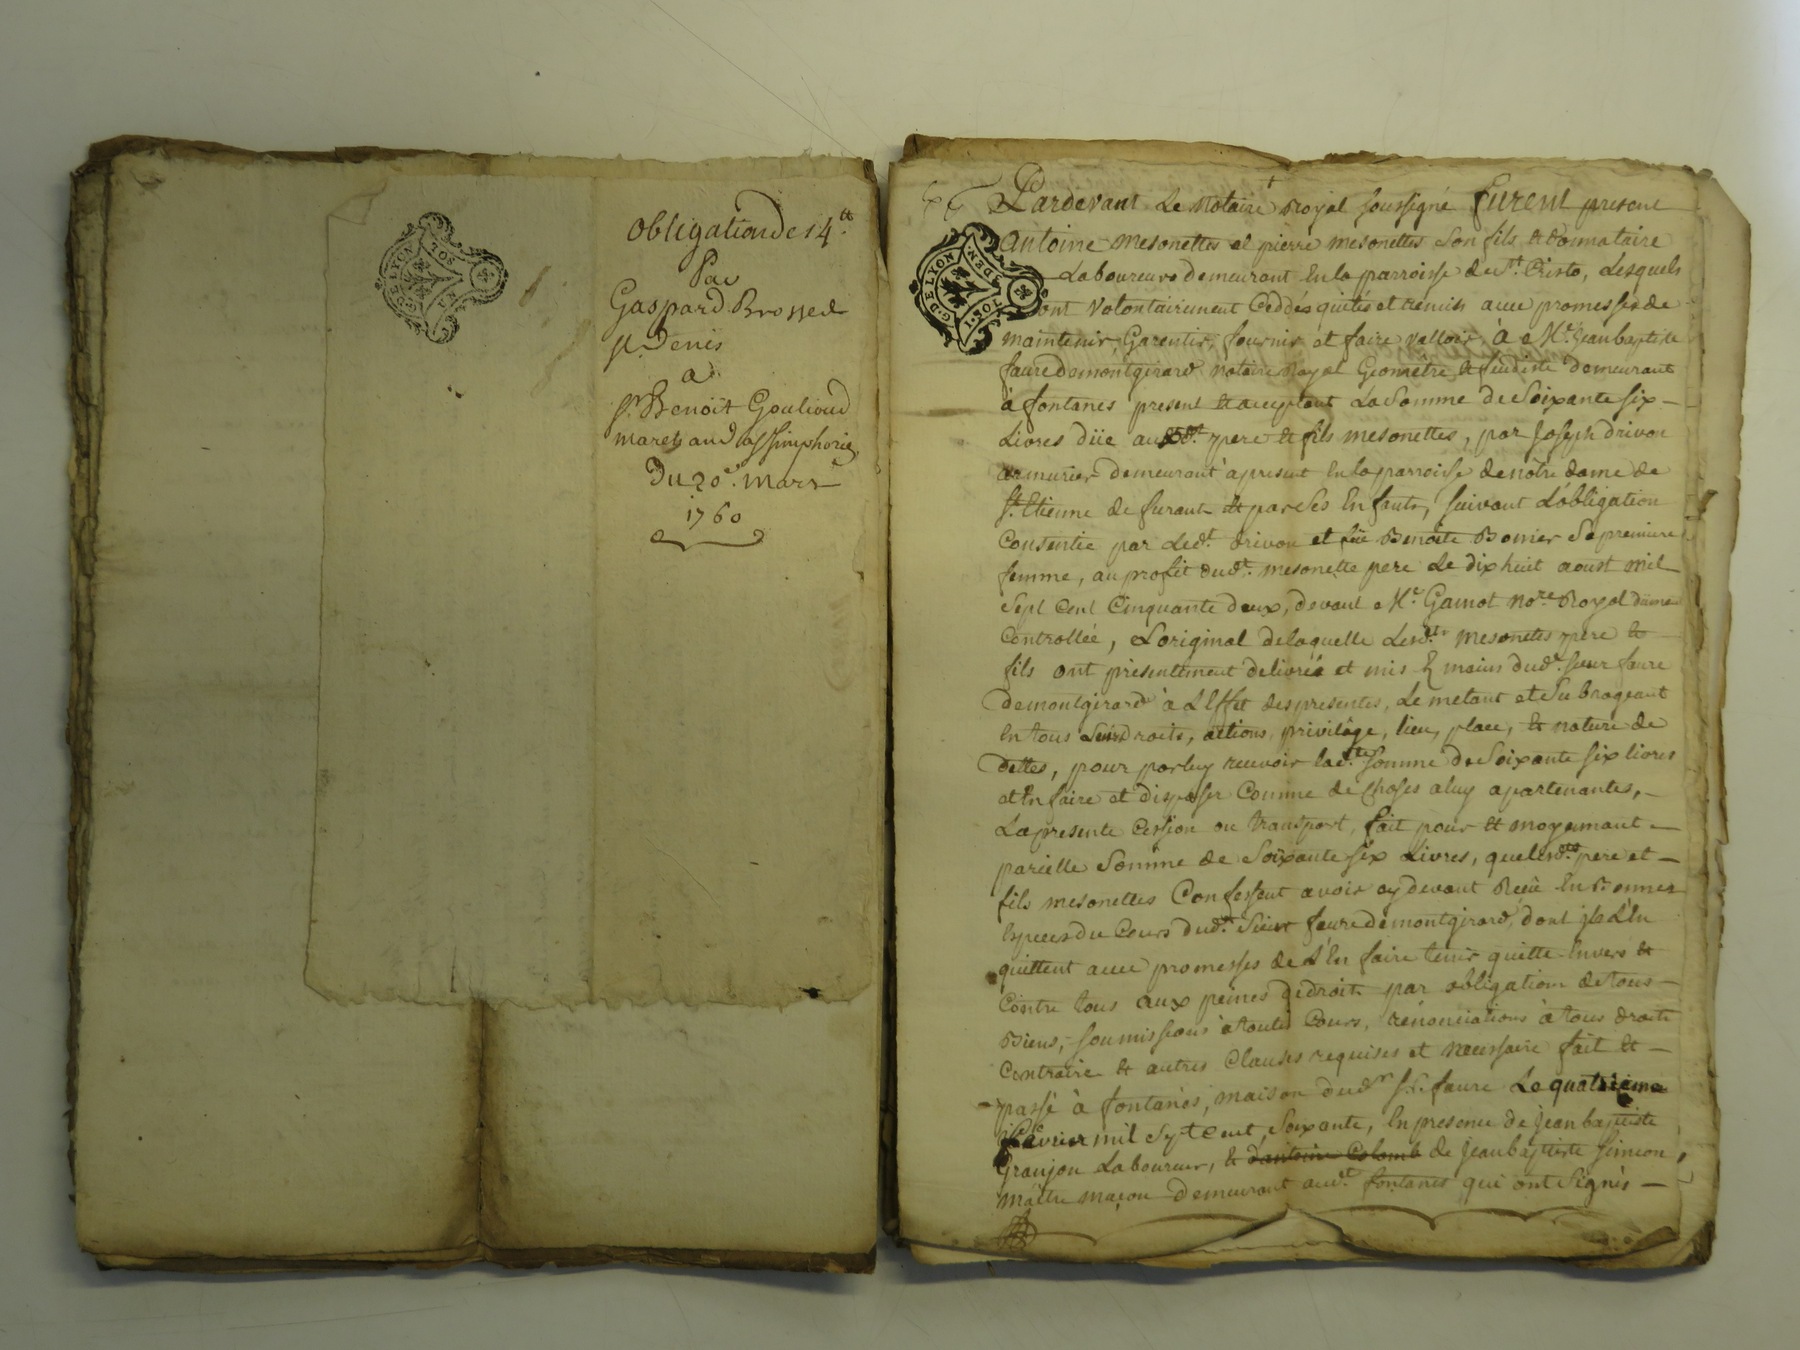 obligation de 14.tt
Par
Gaspard Brossed
st. Denis
a
sr. Benoit Goulioud
marchand a st simphorie
Du 20e. mars
1760
G. DE LYON
I. SOL
G. DE LYON
I. SOL 3 DEN.
Pardevant Le Notaire Royal soussigné furent present
antoine mesonettes et pierre mesonettes son fils & donnataire
Laboureurs demeurant En la parroisse de st. Cristo, Lesquels
ont volontairement Ceddés quittés et remis avec promesses de
maintenir, Garentir, fournir et faire valloir, à Me. Jean baptiste
faure de montgirard notaire Royal Geometre & feudiste demeurant
à fontanes present & acceptant La Somme de Soixante six -
Livres düe aux dt. pere & fils mesonettes, par Joseph drivon
armurier demeurant apresent En la parroisse de nôtre dame de
st. Etienne de furant & par ses Enfants, suivant L'obligation
Consentie par Led.t drivon et füe Benoite Bonier Sa premiere
femme, au profit dud.t mesonette pere Le dix huit aoust mil
Sept Cent Cinquante deux, devant Me. Gamot nore. Royal düment
Controllée, L'original de laquelle Lesd.ts mesonetes pere &
fils ont presentement delivréé et mis Es mains dud.t sieur faure
demontgirard à L'Effet des presentes, Le metant et Subrogeant
En tous Leurs droits, actions, privilége, lieu, place, & nature de
dettes, pour par luy recevoir lad.te somme de Soixante six livres
et En faire et disposer Comme de choses a luy apartenantes, -
La presente Cession ou transport, fait pour & moyennant -
parielle Somme de Soixante six Livres, que lesd.ts pere et -
fils mesonettes Confessent avoir cy devant Reçû En Bonnes
Especes du Cours dud.t Sieur faure demontgirard, dont ils L'En
quittent avec promesses de L'En faire tenir quitte Envers &
Contre tous aux peines de droit par obligation de tous -
Biens, soumissions à toutes Cours, rénonciations à tous droits
Contraire & autres Clauses requises et necessaire fait & -
- passé à fontanès, maison dud.t sr. faure Le quatrieme
fevrier mil Sept Cent Soixante, En presence de Jean baptiste
Granjon Laboureur, & d'antoine Colomb de Jean baptiste Simeon,
maitre maçon demeurant aud.t fontanes qui ont Signés -